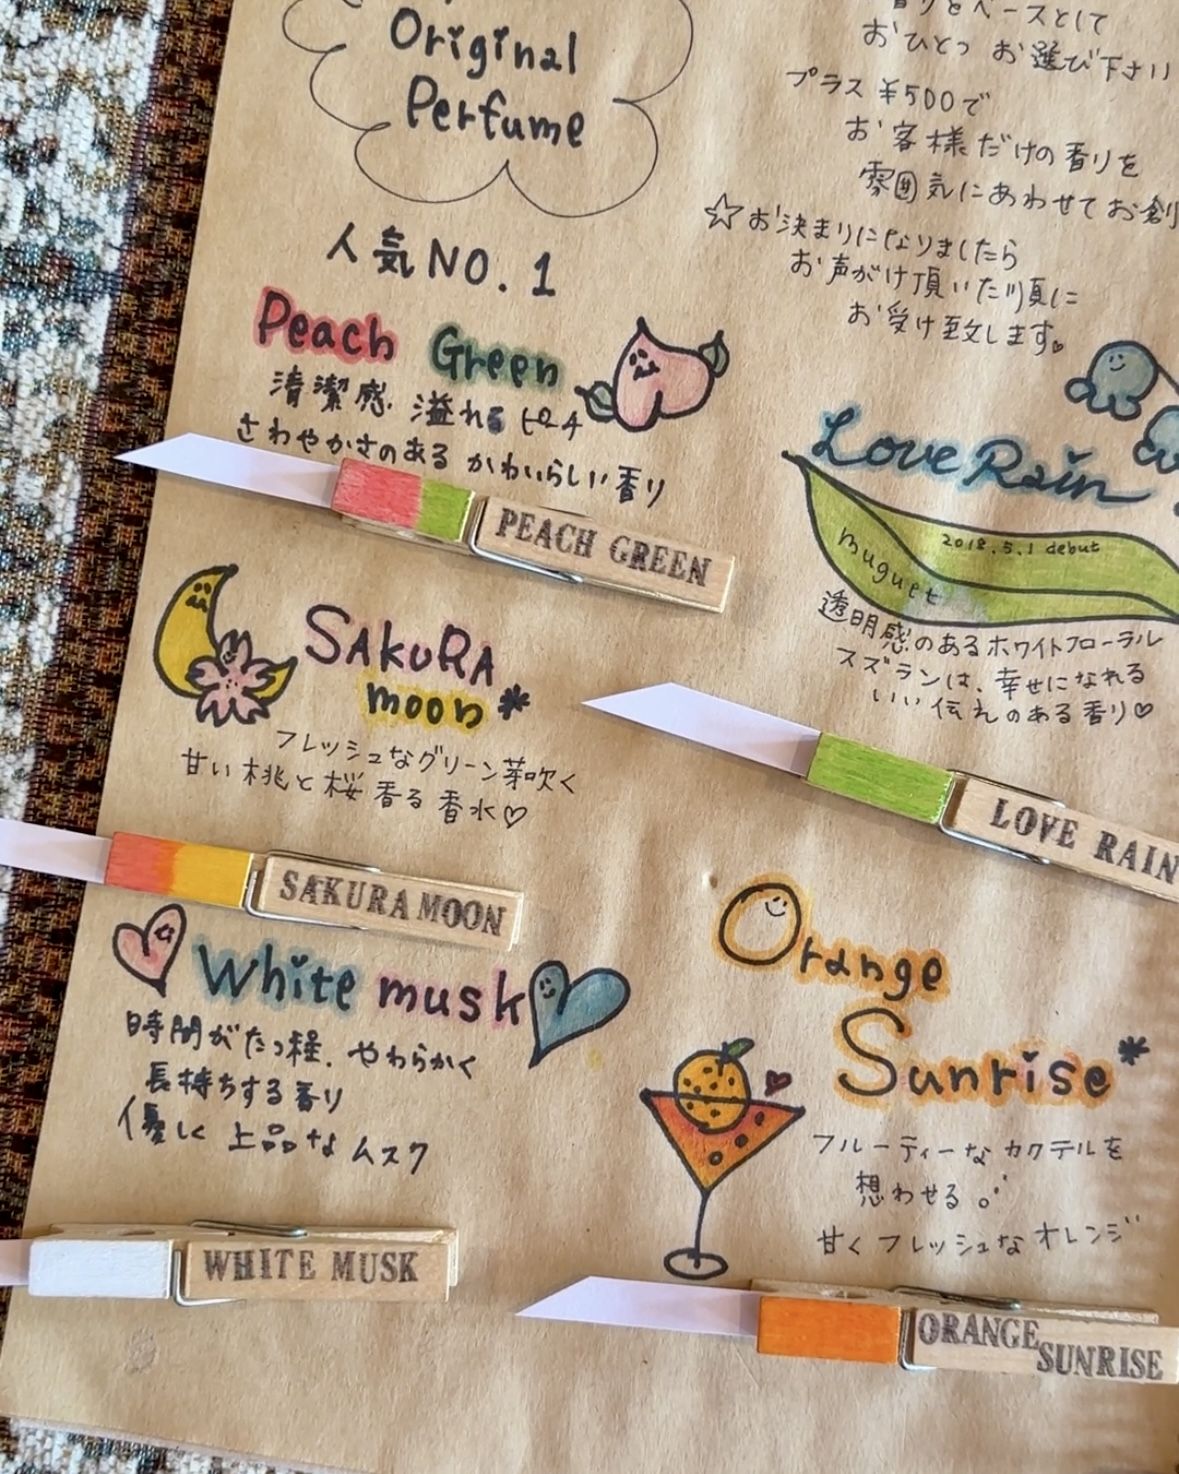 Original
Perfume
香りをベースとして
おひとつ お選び下さい
プラス ¥500で
お客様だけの香りを
雰囲気にあわせてお創
☆お決まりになりましたら
お声がけ頂いた順に
お受け致します。
人気NO.1
Peach Green
清潔感 溢れる ピーチ
さわやかさのある かわいらしい香り
PEACH GREEN
Love Rain
2018.5.1 debut
muguet
透明感のあるホワイトフローラル
スズランは、幸せになれる
いい伝えのある香り♡
LOVE RAIN
SAKURA
moon*
フレッシュなグリーン芽吹く
甘い桃と桜香る香水♡
SAKURA MOON
White musk
時間がたつ程、やわらかく
長持ちする香り
優しく 上品な ムスク
WHITE MUSK
Orange
Sunrise*
フルーティーなカクテルを
想わせる。
甘くフレッシュなオレンジ
ORANGE
SUNRISE